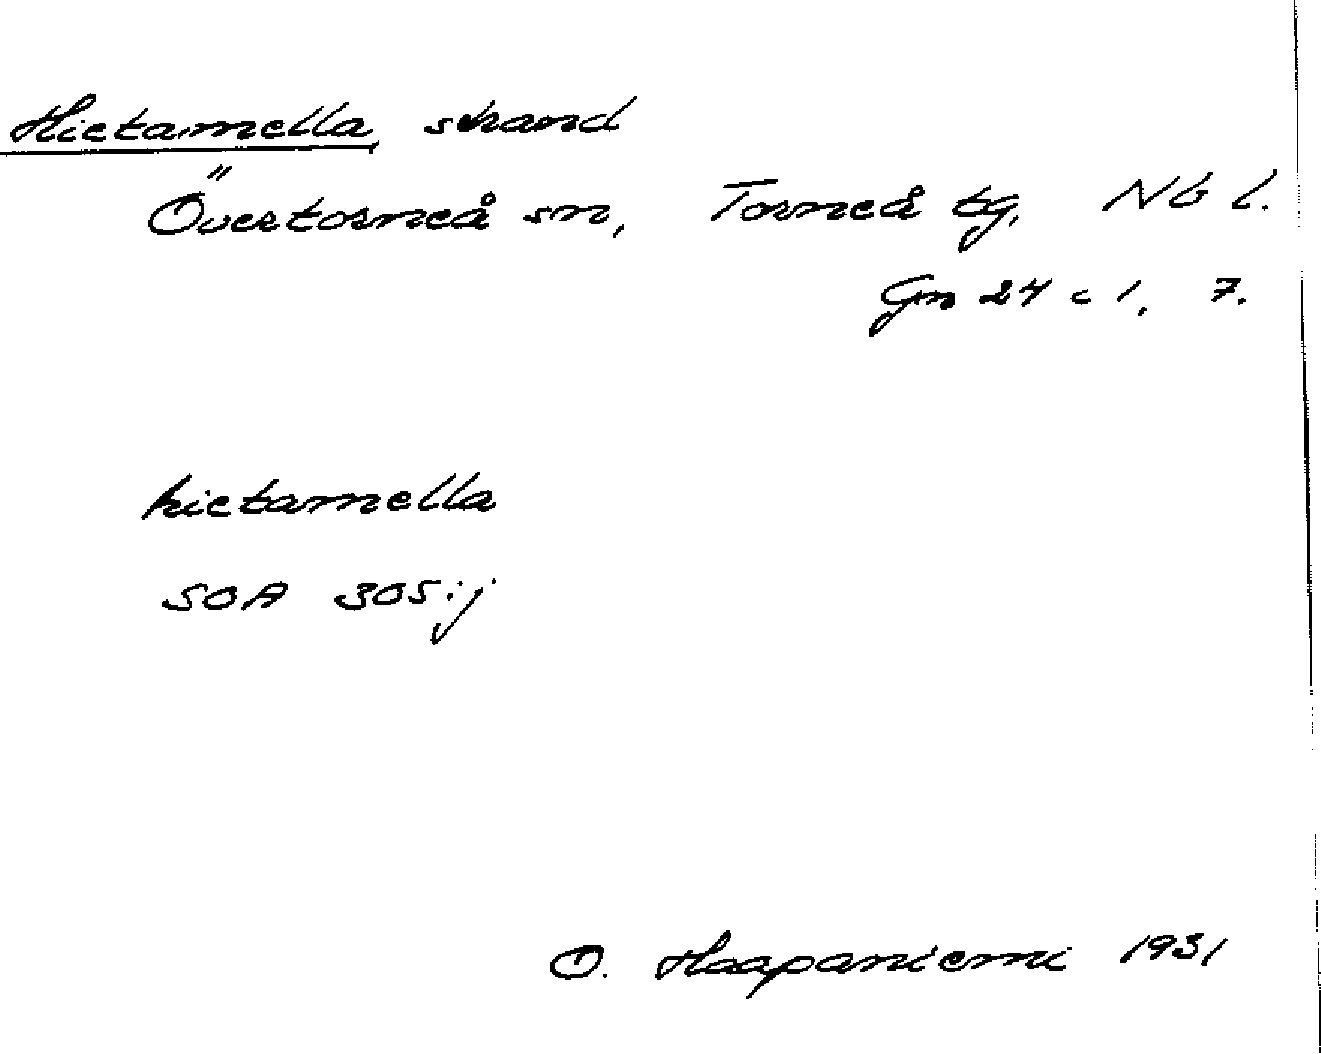 Hietamella, strand
Övertorneå sn, Torneå tg, Nb l.
Gm 24 c 1, 7.
hietamella
SOA 305:j
O. Haapaniemi 1931